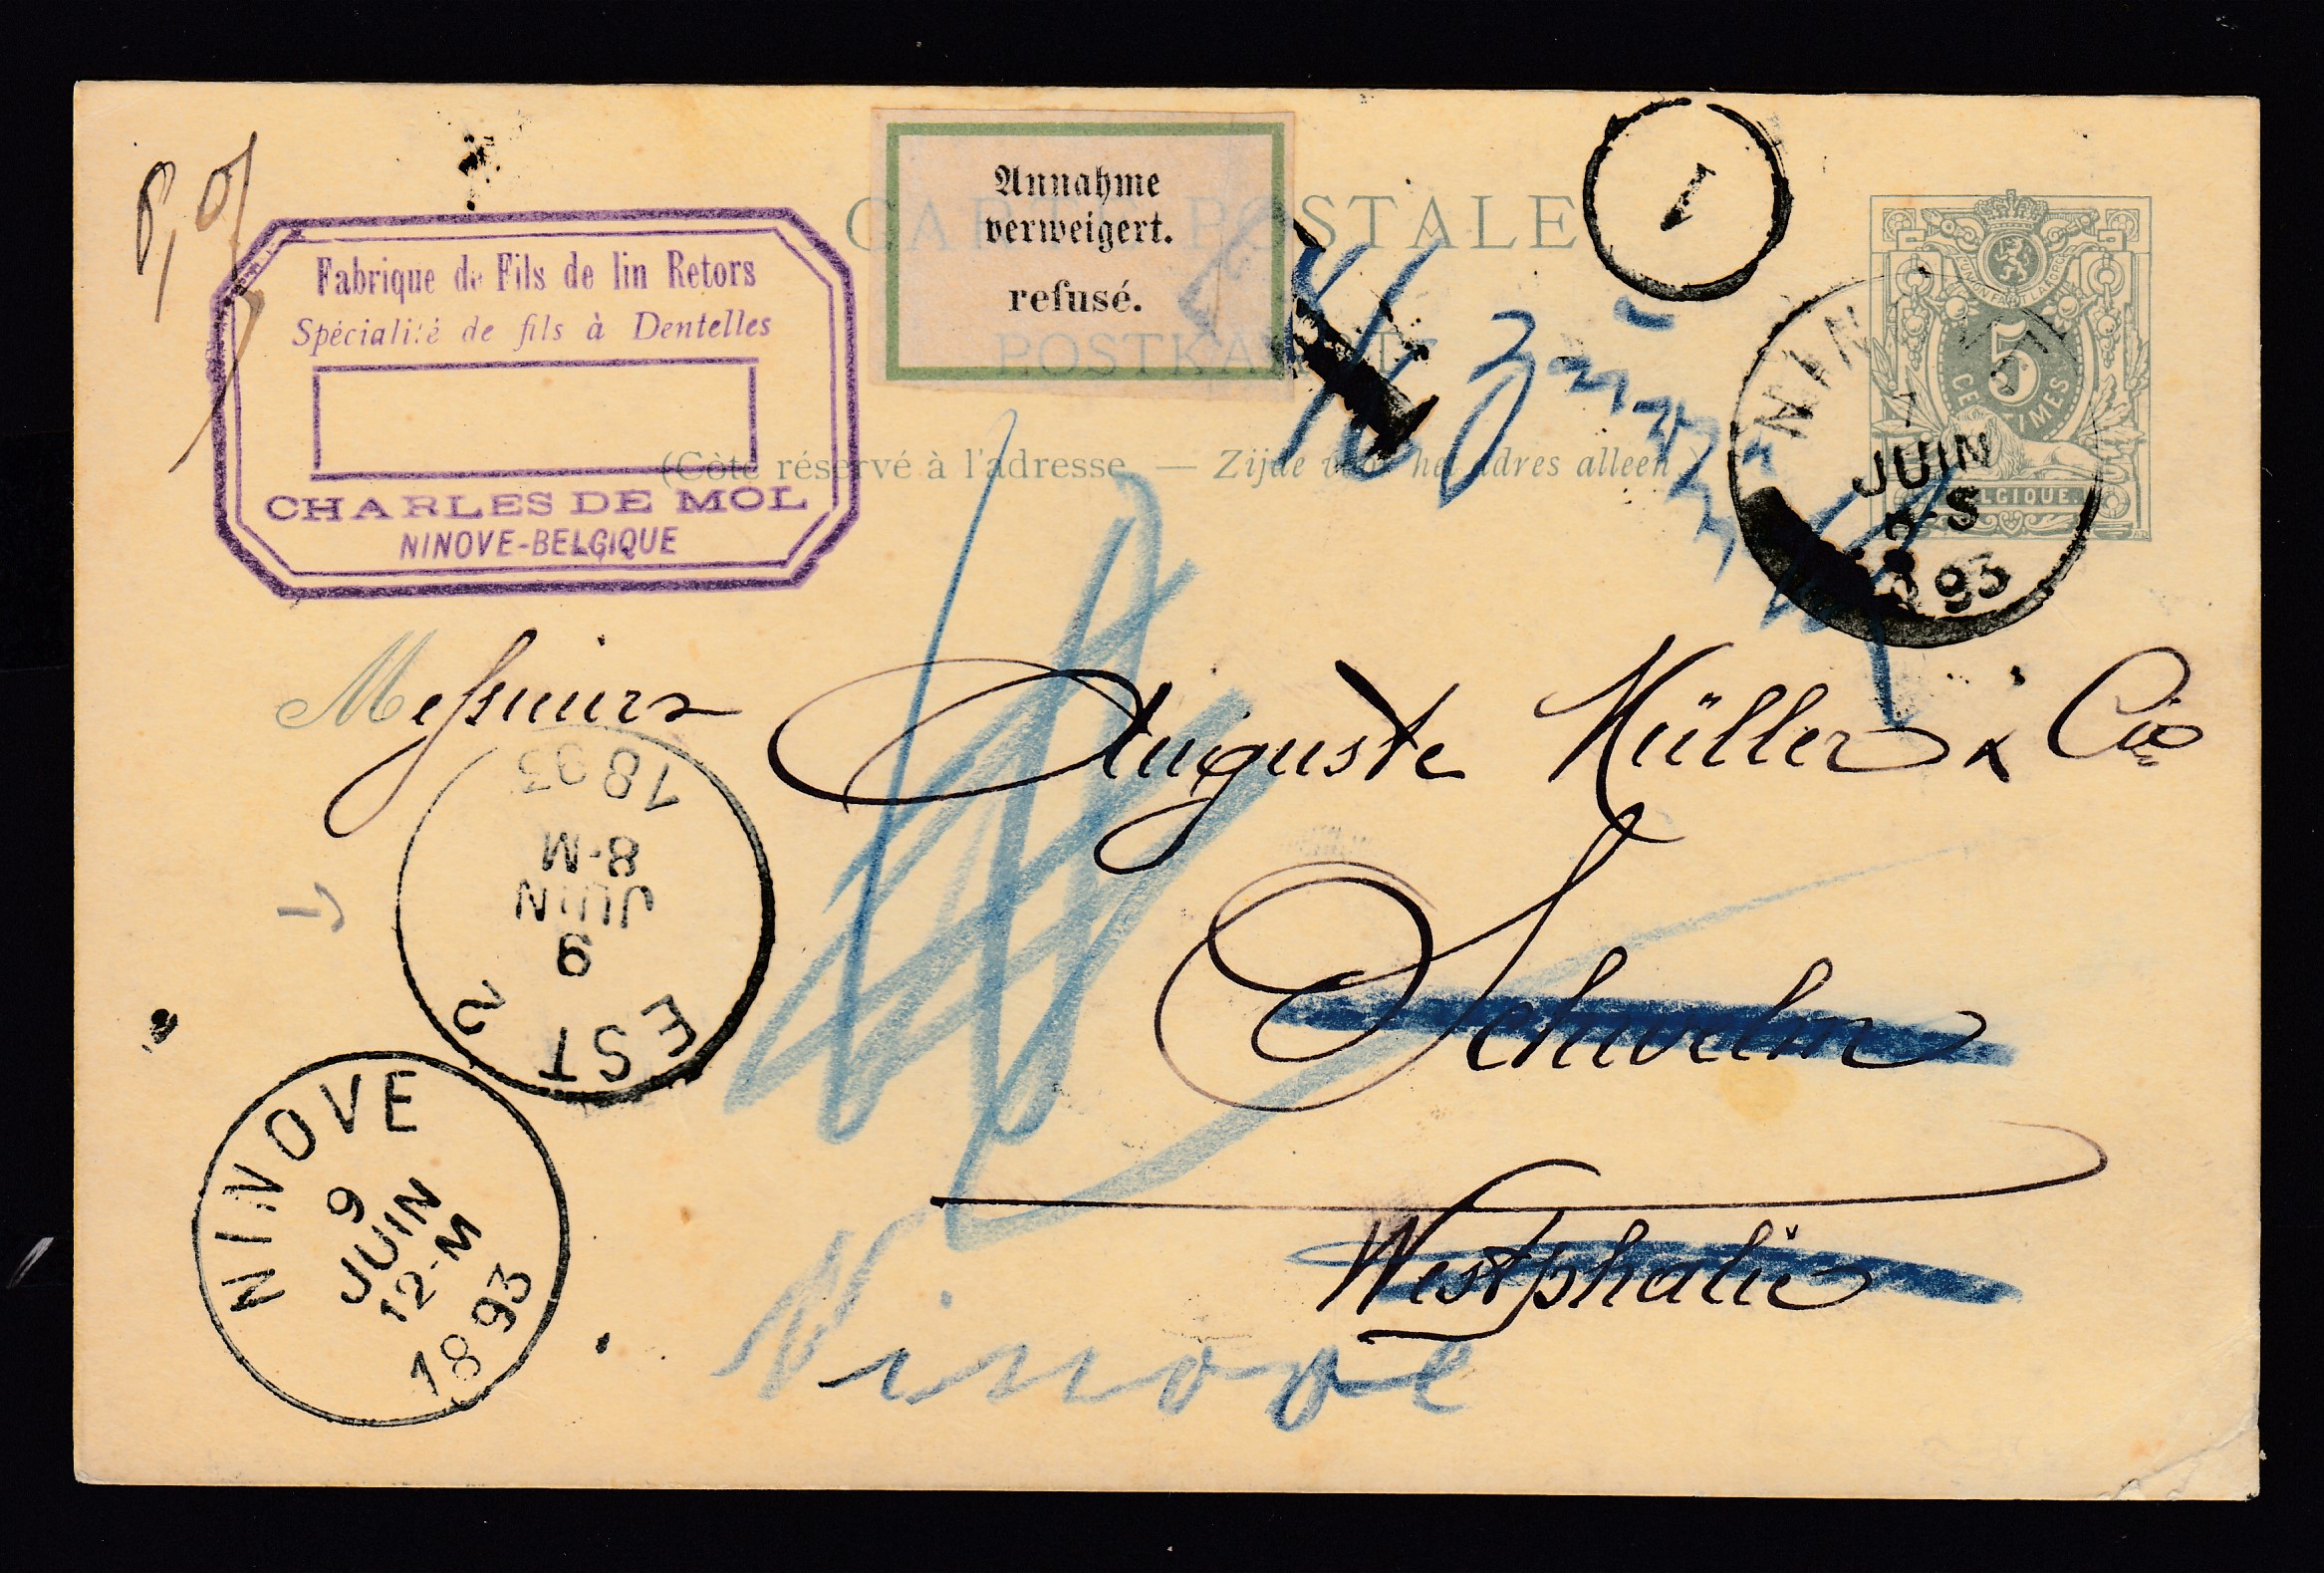 CARTE POSTALE
POSTKAART
Annahme
verweigert.
refusé.
1
Fabrique de Fils de lin Retors
Spécialité de fils à Dentelles
CHARLES DE MOL
NINOVE-BELGIQUE
(Côté réservé à l'adresse. — Zijde voor het adres alleen.)
L'UNION FAIT LA FORCE
5
CENTIMES
BELGIQUE.
NINOVE
7
JUIN
-S
1893
Messieurs Auguste Müller & Cie
Schwelm
Westphalie
Ninove
1893
8-M
JUIN
9
EST 2
NINOVE
9
JUIN
12-M
1893